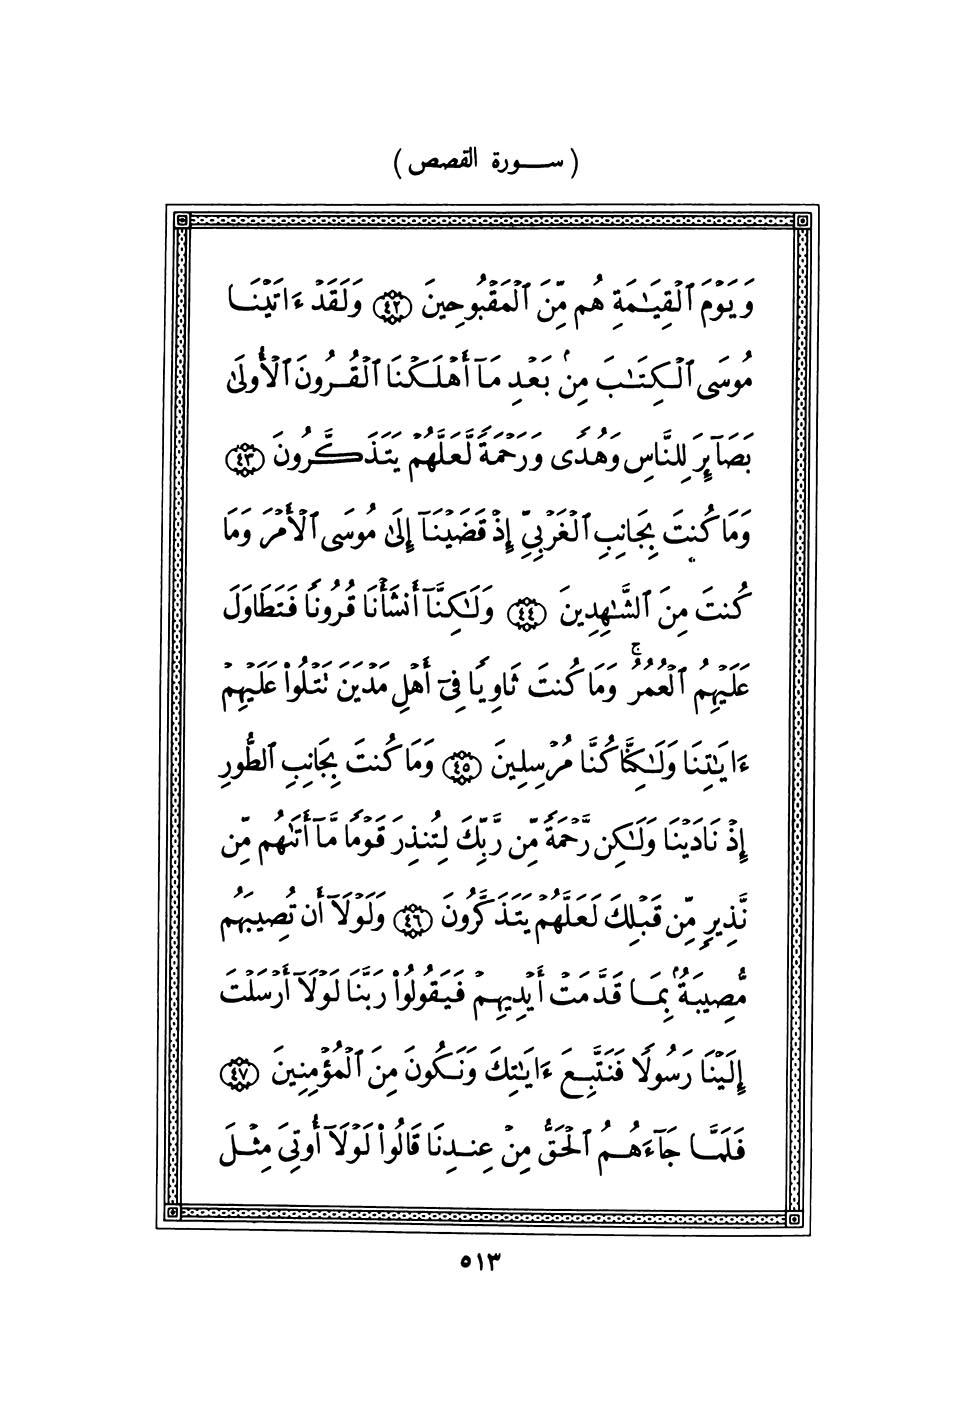 ( ســورة القصص )
وَيَوْمَ ٱلْقِيَـٰمَةِ هُم مِّنَ ٱلْمَقْبُوحِينَ ﴿٤٢﴾ وَلَقَدْ ءَاتَيْنَا
مُوسَى ٱلْكِتَـٰبَ مِنۢ بَعْدِ مَآ أَهْلَكْنَا ٱلْقُرُونَ ٱلْأُولَىٰ
بَصَآئِرَ لِلنَّاسِ وَهُدًى وَرَحْمَةً لَّعَلَّهُمْ يَتَذَكَّرُونَ ﴿٤٣﴾
وَمَا كُنتَ بِجَانِبِ ٱلْغَرْبِيِّ إِذْ قَضَيْنَآ إِلَىٰ مُوسَى ٱلْأَمْرَ وَمَا
كُنتَ مِنَ ٱلشَّـٰهِدِينَ ﴿٤٤﴾ وَلَـٰكِنَّآ أَنشَأْنَا قُرُونًا فَتَطَاوَلَ
عَلَيْهِمُ ٱلْعُمُرُ ۚ وَمَا كُنتَ ثَاوِيًا فِىٓ أَهْلِ مَدْيَنَ تَتْلُوا۟ عَلَيْهِمْ
ءَايَـٰتِنَا وَلَـٰكِنَّا كُنَّا مُرْسِلِينَ ﴿٤٥﴾ وَمَا كُنتَ بِجَانِبِ ٱلطُّورِ
إِذْ نَادَيْنَا وَلَـٰكِن رَّحْمَةً مِّن رَّبِّكَ لِتُنذِرَ قَوْمًا مَّآ أَتَىٰهُم مِّن
نَّذِيرٍ مِّن قَبْلِكَ لَعَلَّهُمْ يَتَذَكَّرُونَ ﴿٤٦﴾ وَلَوْلَآ أَن تُصِيبَهُم
مُّصِيبَةٌۢ بِمَا قَدَّمَتْ أَيْدِيهِمْ فَيَقُولُوا۟ رَبَّنَا لَوْلَآ أَرْسَلْتَ
إِلَيْنَا رَسُولًا فَنَتَّبِعَ ءَايَـٰتِكَ وَنَكُونَ مِنَ ٱلْمُؤْمِنِينَ ﴿٤٧﴾
فَلَمَّا جَآءَهُمُ ٱلْحَقُّ مِنْ عِندِنَا قَالُوا۟ لَوْلَآ أُوتِىَ مِثْلَ
٥١٣